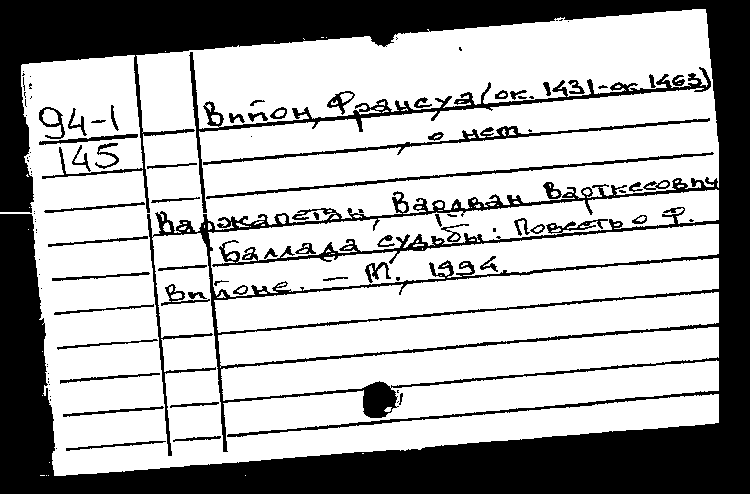 94-1
145
Вийон, Франсуа (ок. 1431-ок. 1463)
, о нем.
Варжапетян, ВардванВарткесович
Баллада судьбы: Повесть о Ф.
Вийоне. — М., 1994.